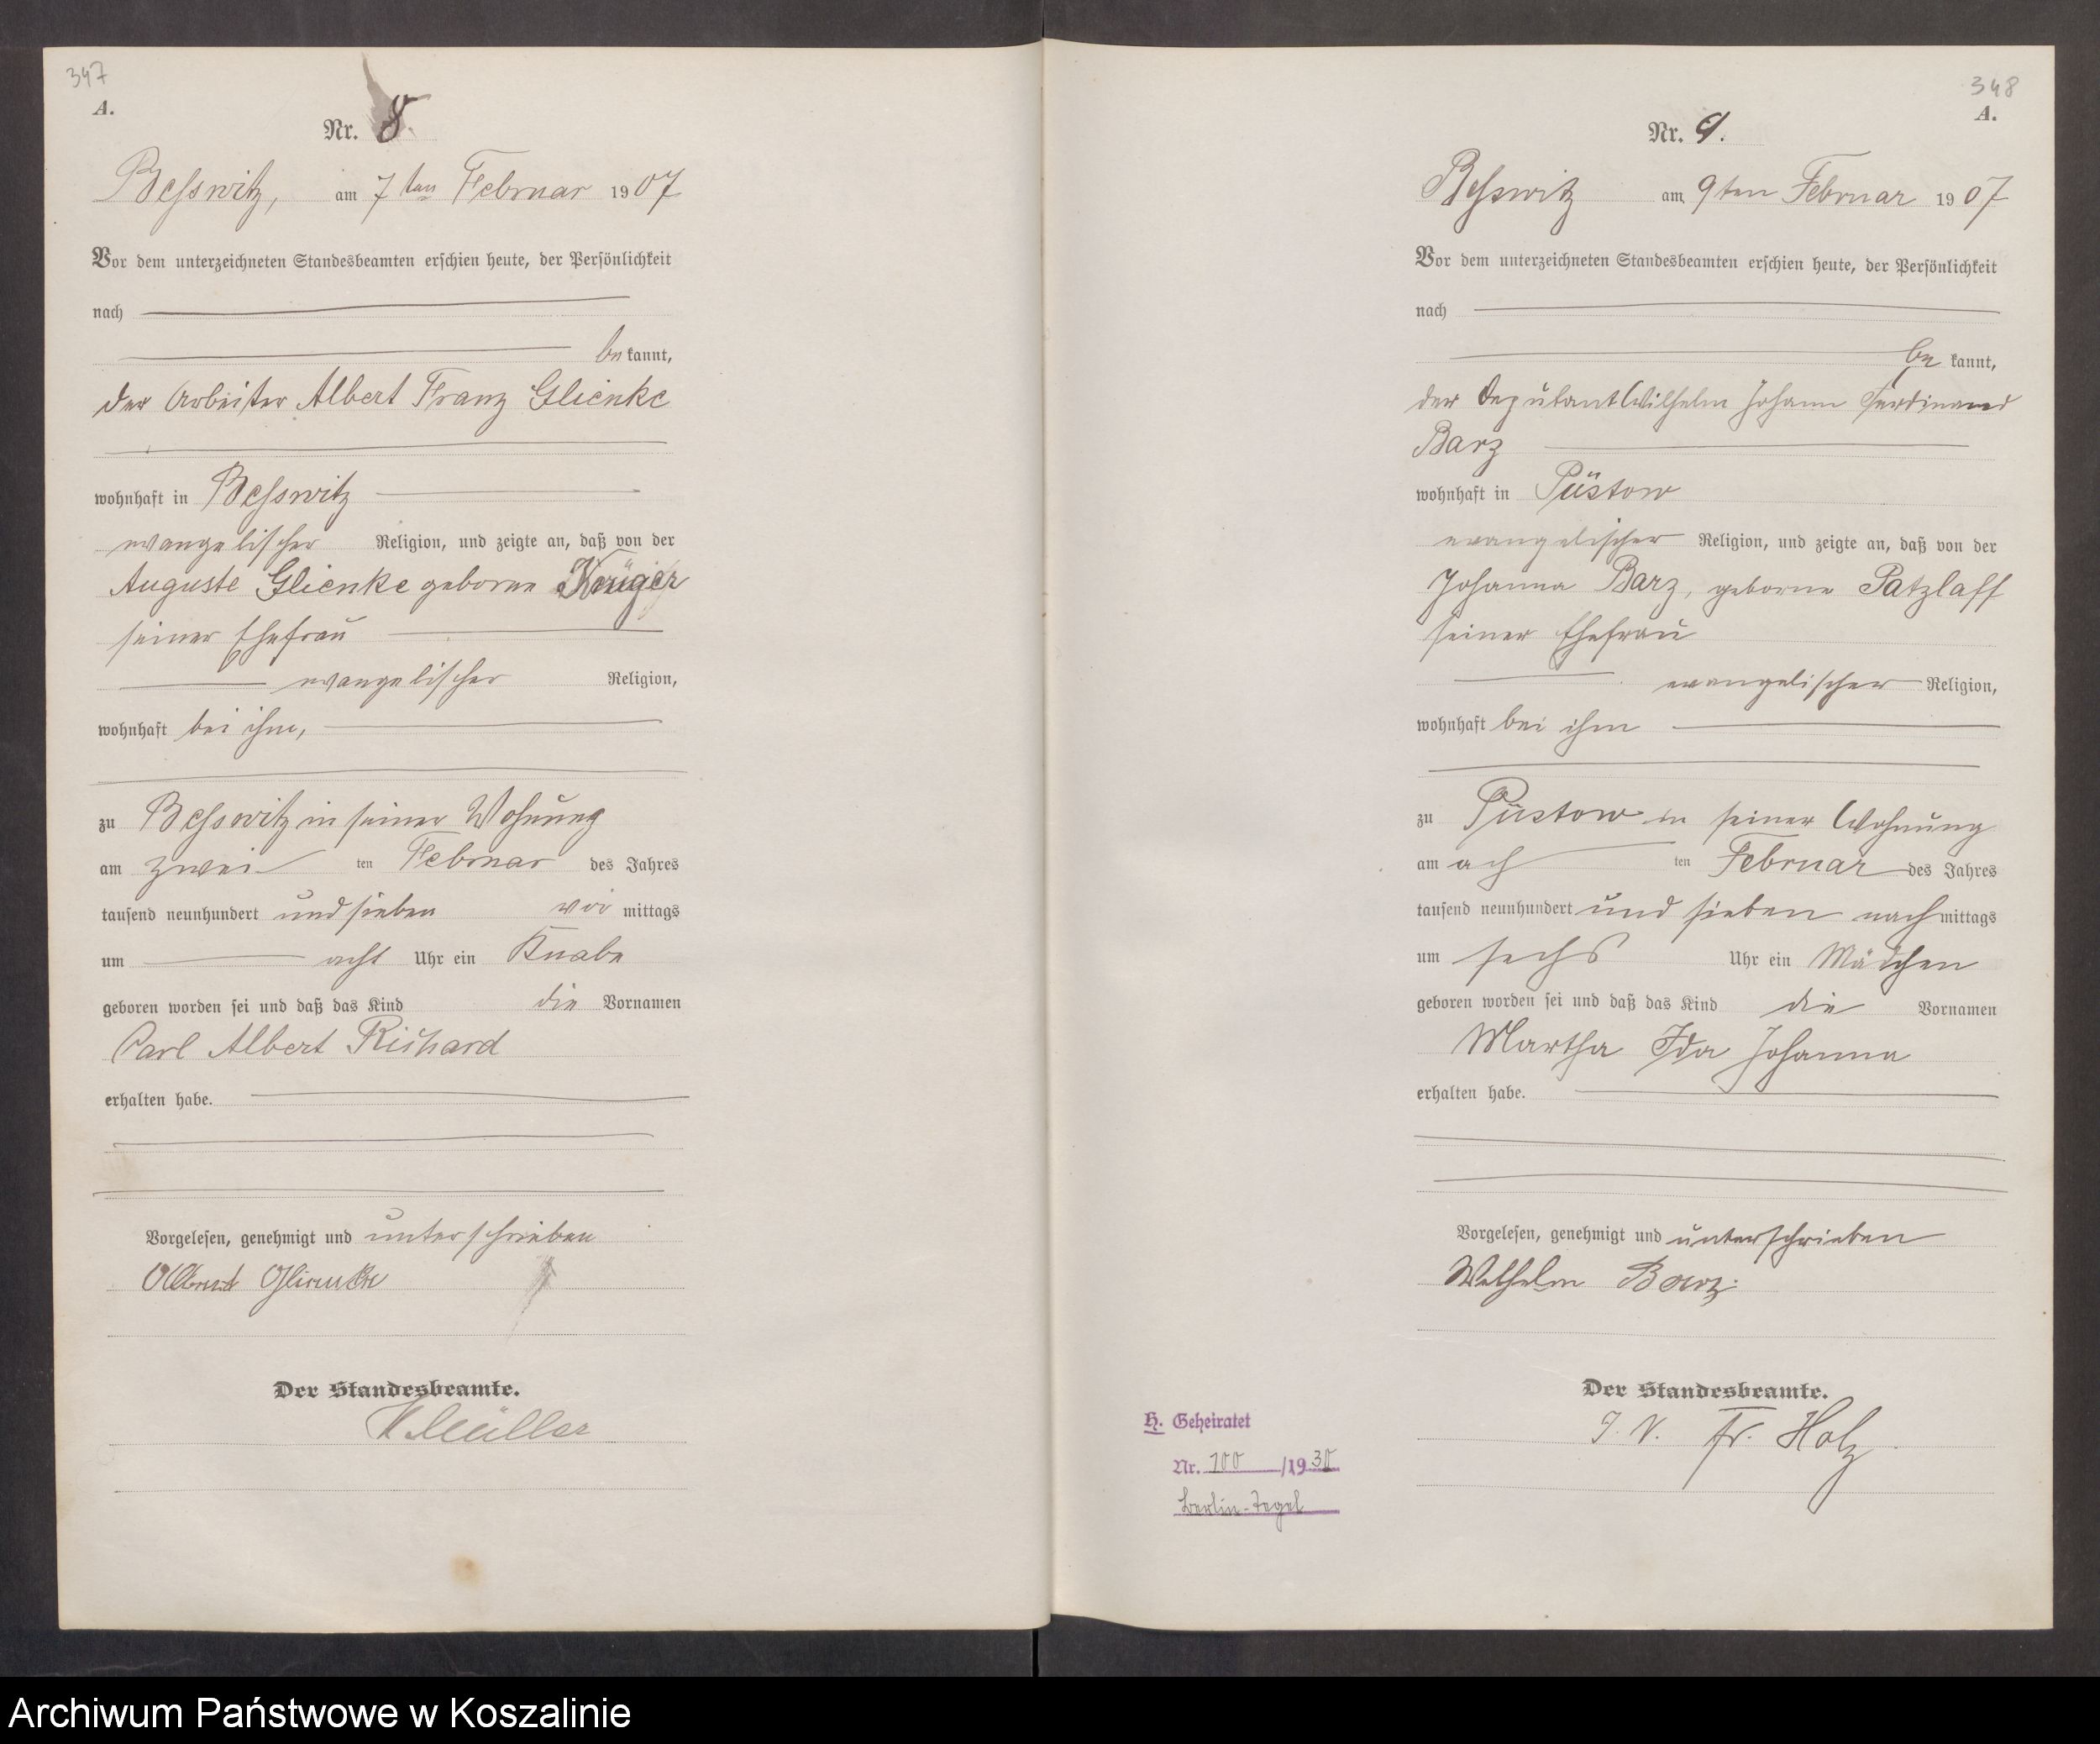 347
A.
Nr. 8.
Besswitz, am 7ten Februar 1907
Vor dem unterzeichneten Standesbeamten erschien heute, der Persönlichkeit
nach
bekannt,
der Arbeiter Albert Franz Glienke
wohnhaft in Besswitz
evangelischer Religion, und zeigte an, daß von der
Auguste Glienke geborne Krüger
seiner Ehefrau
evangelischer Religion,
wohnhaft bei ihm,
zu Besswitz in seiner Wohnung
am zwei ten Februar des Jahres
tausend neunhundert und sieben vor mittags
um acht Uhr ein Knabe
geboren worden sei und daß das Kind die Vornamen
Carl Albert Richard
erhalten habe.
Vorgelesen, genehmigt und unterschrieben
Albert Glienke
Der Standesbeamte.
Müller
348
A.
Nr. 9.
Besswitz am 9ten Februar 1907
Vor dem unterzeichneten Standesbeamten erschien heute, der Persönlichkeit
nach
be kannt,
der Deputant Wilhelm Johann Ferdinand
Barz
wohnhaft in Püstow
evangelischer Religion, und zeigte an, daß von der
Johanna Barz, geborne Patzlaff
seiner Ehefrau
evangelischer Religion,
wohnhaft bei ihm
zu Püstow in seiner Wohnung
am ach ten Februar des Jahres
tausend neunhundert und sieben nach mittags
um sechs Uhr ein Mädchen
geboren worden sei und daß das Kind die Vornamen
Martha Ida Johanna
erhalten habe.
Vorgelesen, genehmigt und unterschrieben
Wilhelm Barz.
Der Standesbeamte.
J. V. Fr. Holz
H. Geheiratet
Nr. 100 /1930
Berlin-Tegel
Archiwum Państwowe w Koszalinie